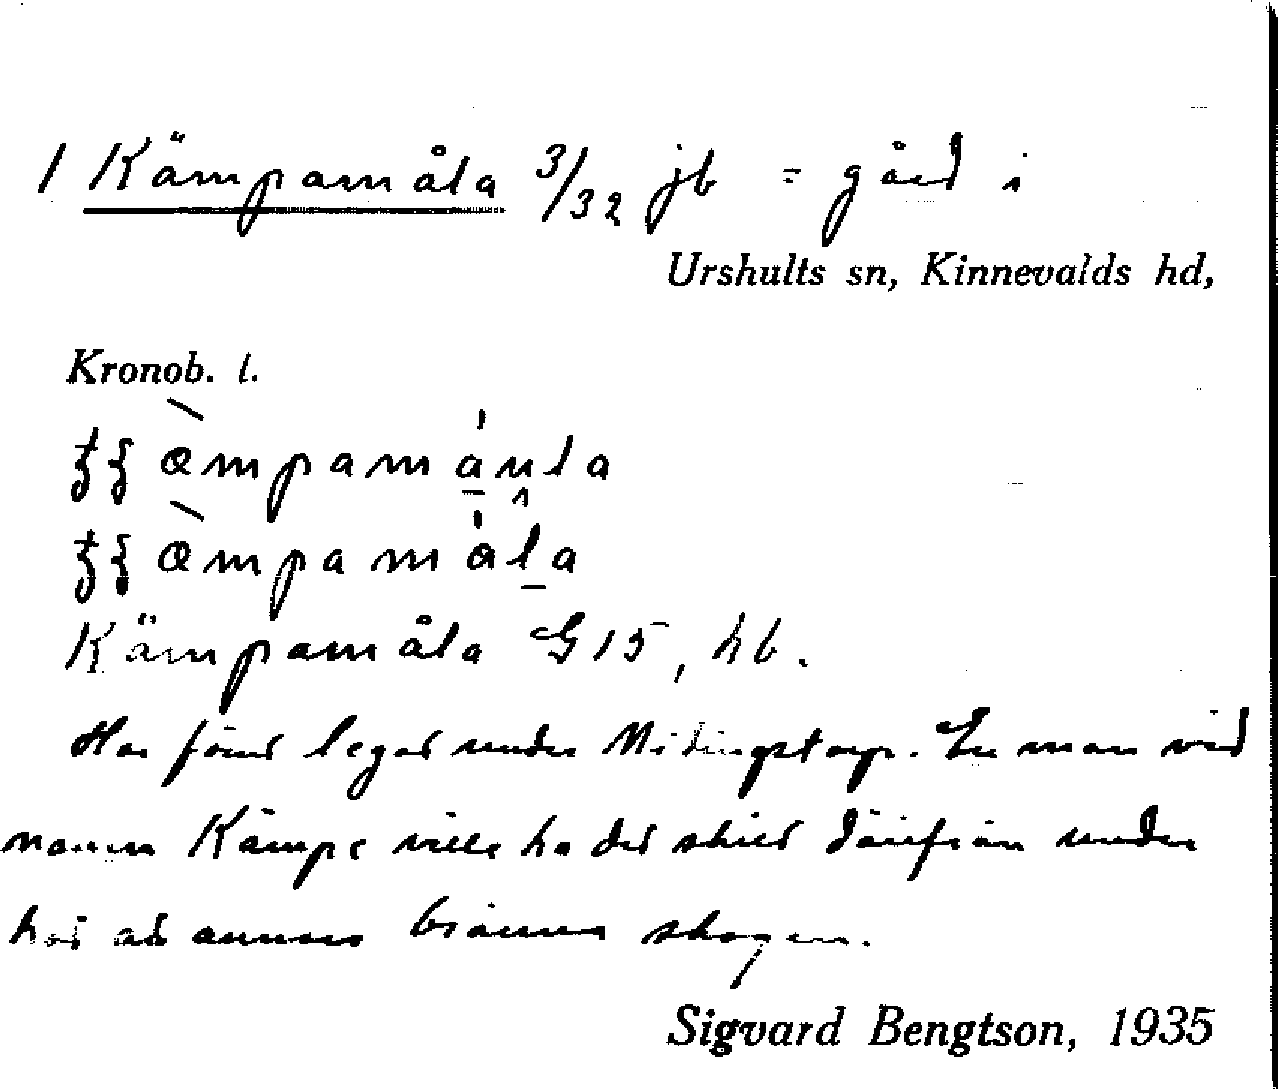 1 Kämpamåla 3/32 jb = gård i
Urshults sn, Kinnevalds hd,
Kronob. l.
Kämpamåla G15, hb.
Har förut legat under Midingstorp. En man vid
namn Kämpe ville ha det skilt därifrån under
hot att annars bränna skogen.
Sigvard Bengtson, 1935